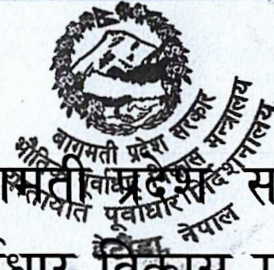 बागमती प्रदेश सरकार
भौतिक पूर्वाधार विकास मन्त्रालय
यातायात पूर्वाधार निर्देशनालय
नेपाल
ामती प्रदेश स